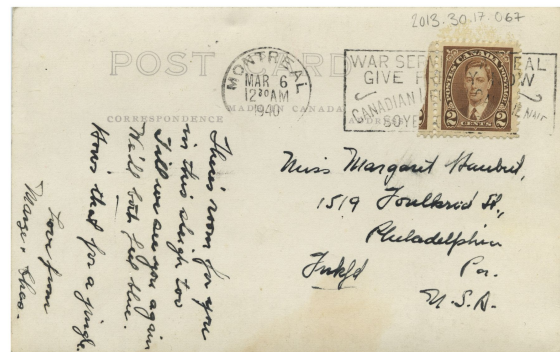 2013.30.17.067
POST CARD
MONTREAL
MAR 6
12 30 AM
1940
WAR SER
AL
GIVE FR
W
CANADIAN
BOYE
CANADA
2 CENTS 2
CORRESPONDENCE
MADE IN CANADA
There's room for you
in this sleigh too
Till we see you again
We'll both feel blue.
How's that for a jingle.
Love from
Marge & Chas.
Miss Margaret Haubert,
1519 Foulkrod St.,
Philadelphia
Frkfd
Pa.
U.S.A.